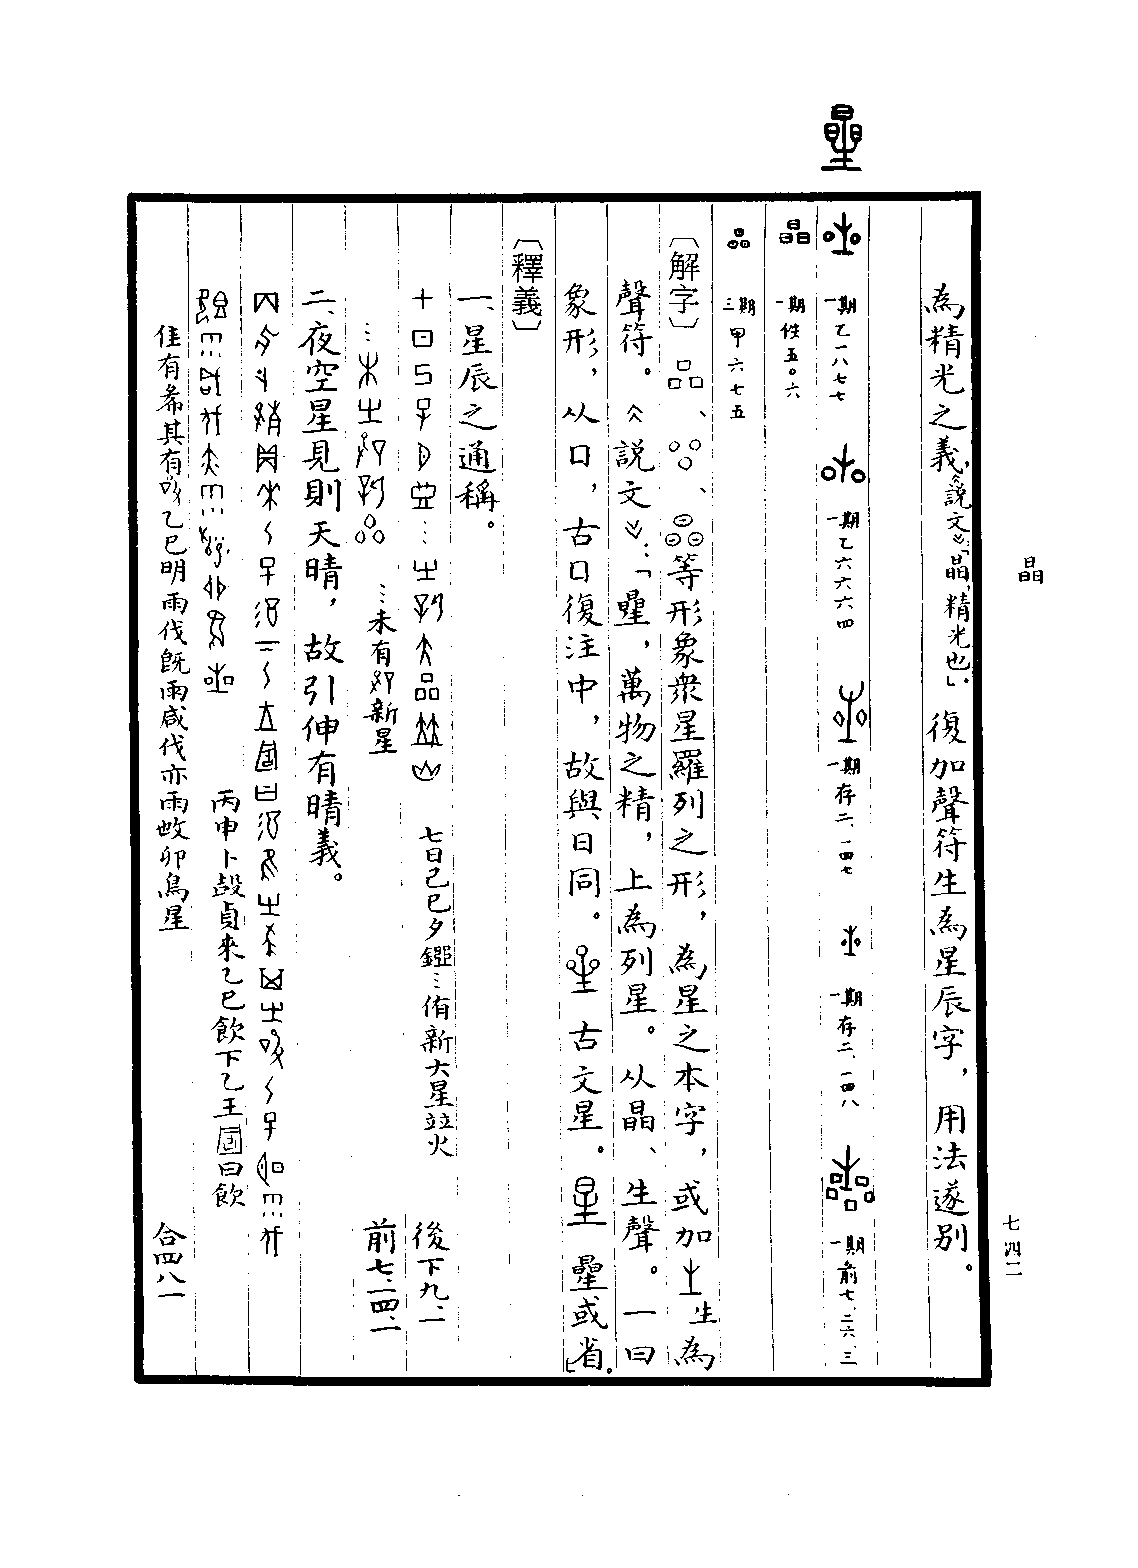 曐
為精光之義，《說文》：「晶，精光也」。復加聲符生為星辰字，用法遂別。
一期 乙一八七七 一期 乙六六六四 一期 存二、一四七 一期 存二、一四八 一期 前七、二六、三
一期 佚五〇六
三期 甲六七五
〔解字〕 、 、 等形象眾星羅列之形，為星之本字，或加 生為
聲符。《說文》：「曐，萬物之精，上為列星。从晶、生聲。一曰
象形，从口，古口復注中，故與日同。 古文星。星 曐或省。」
〔釋義〕
一、星辰之通稱。
七日己巳夕𧗟…侑新大星並火 後下九、一
…未有 新星 前七、一四、一
二、夜空星見則天晴，故引伸有晴義。
丙申卜㱿貞來乙巳飲下乙王 曰飲
隹有希其有 乙巳明雨伐既雨咸伐亦雨 卯鳥星 合四八一
晶
七四二